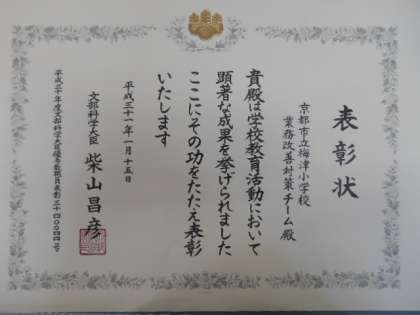 表彰状
京都市立梅津小学校
業務改善対策チーム殿
貴殿は学校教育活動において
顕著な成果を挙げられました
ここにその功をたたえ表彰
いたします
平成三十一年一月十五日
文部科学大臣 柴山昌彦
平成三十年度文部科学大臣優秀教職員表彰三四〇〇四四号